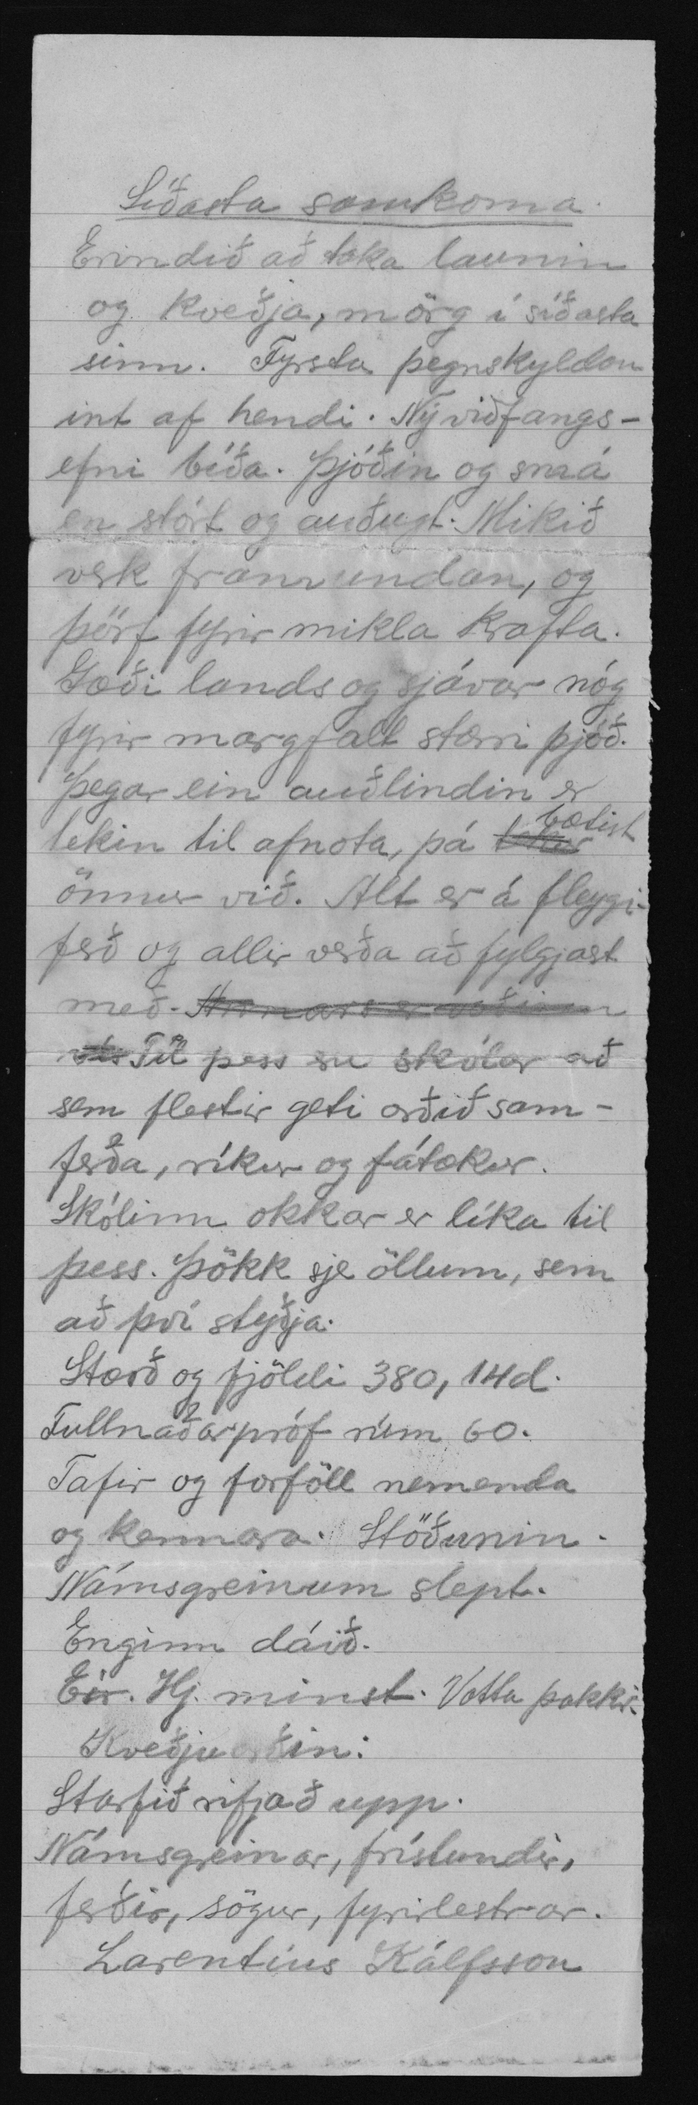 Síðasta samkoma.
Erindið að taka launin
og kveðja, mörg í síðasta
sinn. Fyrsta þegnskyldan
int af hendi. Ný viðfangs-
efni bíða. Þjóðin og smá
en stórt og auðugt. Mikið
verk framundan, og
þörf fyrir mikla krafta.
Gæði lands og sjávar nóg
fyrir margfalt stærri þjóð.
Þegar ein auðlindin er
tekin til afnota, þá bætist
önnur við. Alt er á fleygi-
ferð og allir verða að fylgjast
með. Annars er voðinn
vís Til þess eru skólar að
sem flestir geti orðið sam-
ferða, ríkur og fátækur.
Skólinn okkar er líka til
þess. Þökk sje öllum, sem
að því styðja.
Stærð og fjöldi 380, 14d.
Fullnaðarpróf rúm 60.
Tafir og forföll nemenda
og kennara. Stöðunin.
Námsgreinum slept.
Enginn dáið.
Eir. Hj. minst. Votta þakkir.
Kveðjuorðin:
Starfið rifjað upp.
Námsgreinar, frístundir,
ferðir, sögur, fyrirlestrar.
Larentíus Kálfsson